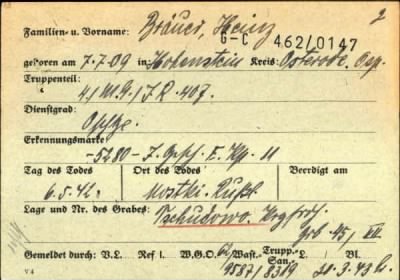 Familien- u. Vorname: Bräuer, Heinz 2
G-C 462/0147
geboren am 7.7.09 in Hohenstein Kreis: Osterode, Opr.
Truppenteil:
4/M.G./J.R. 407.
Dienstgrad:
Ofhr.
Erkennungsmarke
-5280- J. Kp. 11
Tag des Todes Ort des Todes Beerdigt am
6.5.42. Mostki. Rußl.
Lage und Nr. des Grabes: Tschudowo,
Grb. 45/ VII
Gemeldet durch: V.L. Ref L. W.G.O. Wast.- Trupp.- San.- L. Bl.
V 4 9587/8319 3.43